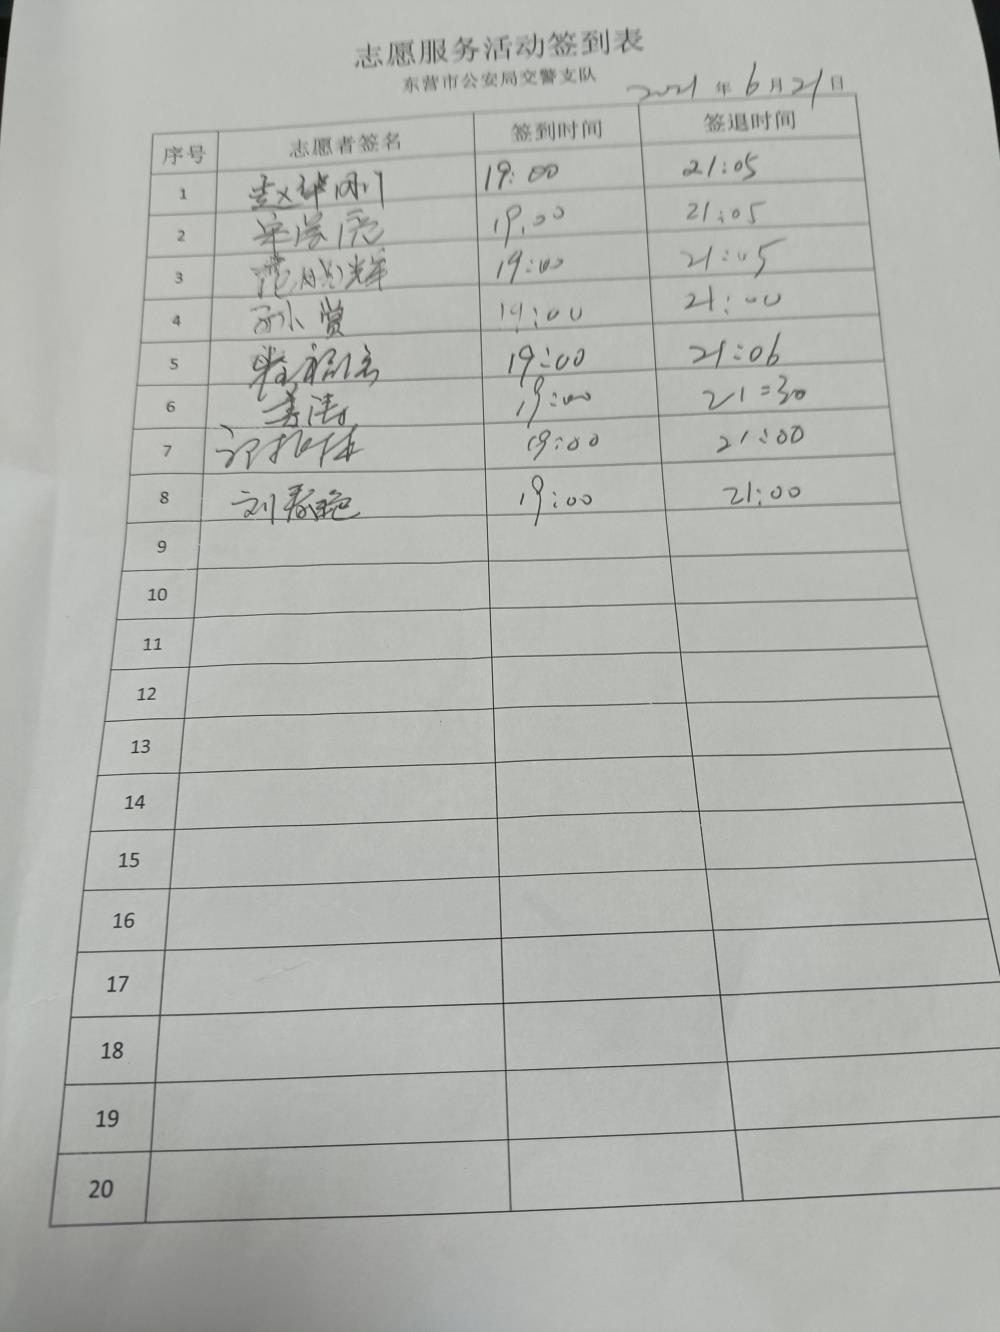 志愿服务活动签到表
东营市公安局交警支队
2021年6月21日
序号 志愿者签名 签到时间 签退时间
1 19:00 21:05
2 19:00 21:05
3 范成辉 19:00 21:05
4 孙赏 19:00 21:00
5 19:00 21:06
6 姜涛 19:00 21:30
7 19:00 21:00
8 刘春艳 19:00 21:00
9
10
11
12
13
14
15
16
17
18
19
20